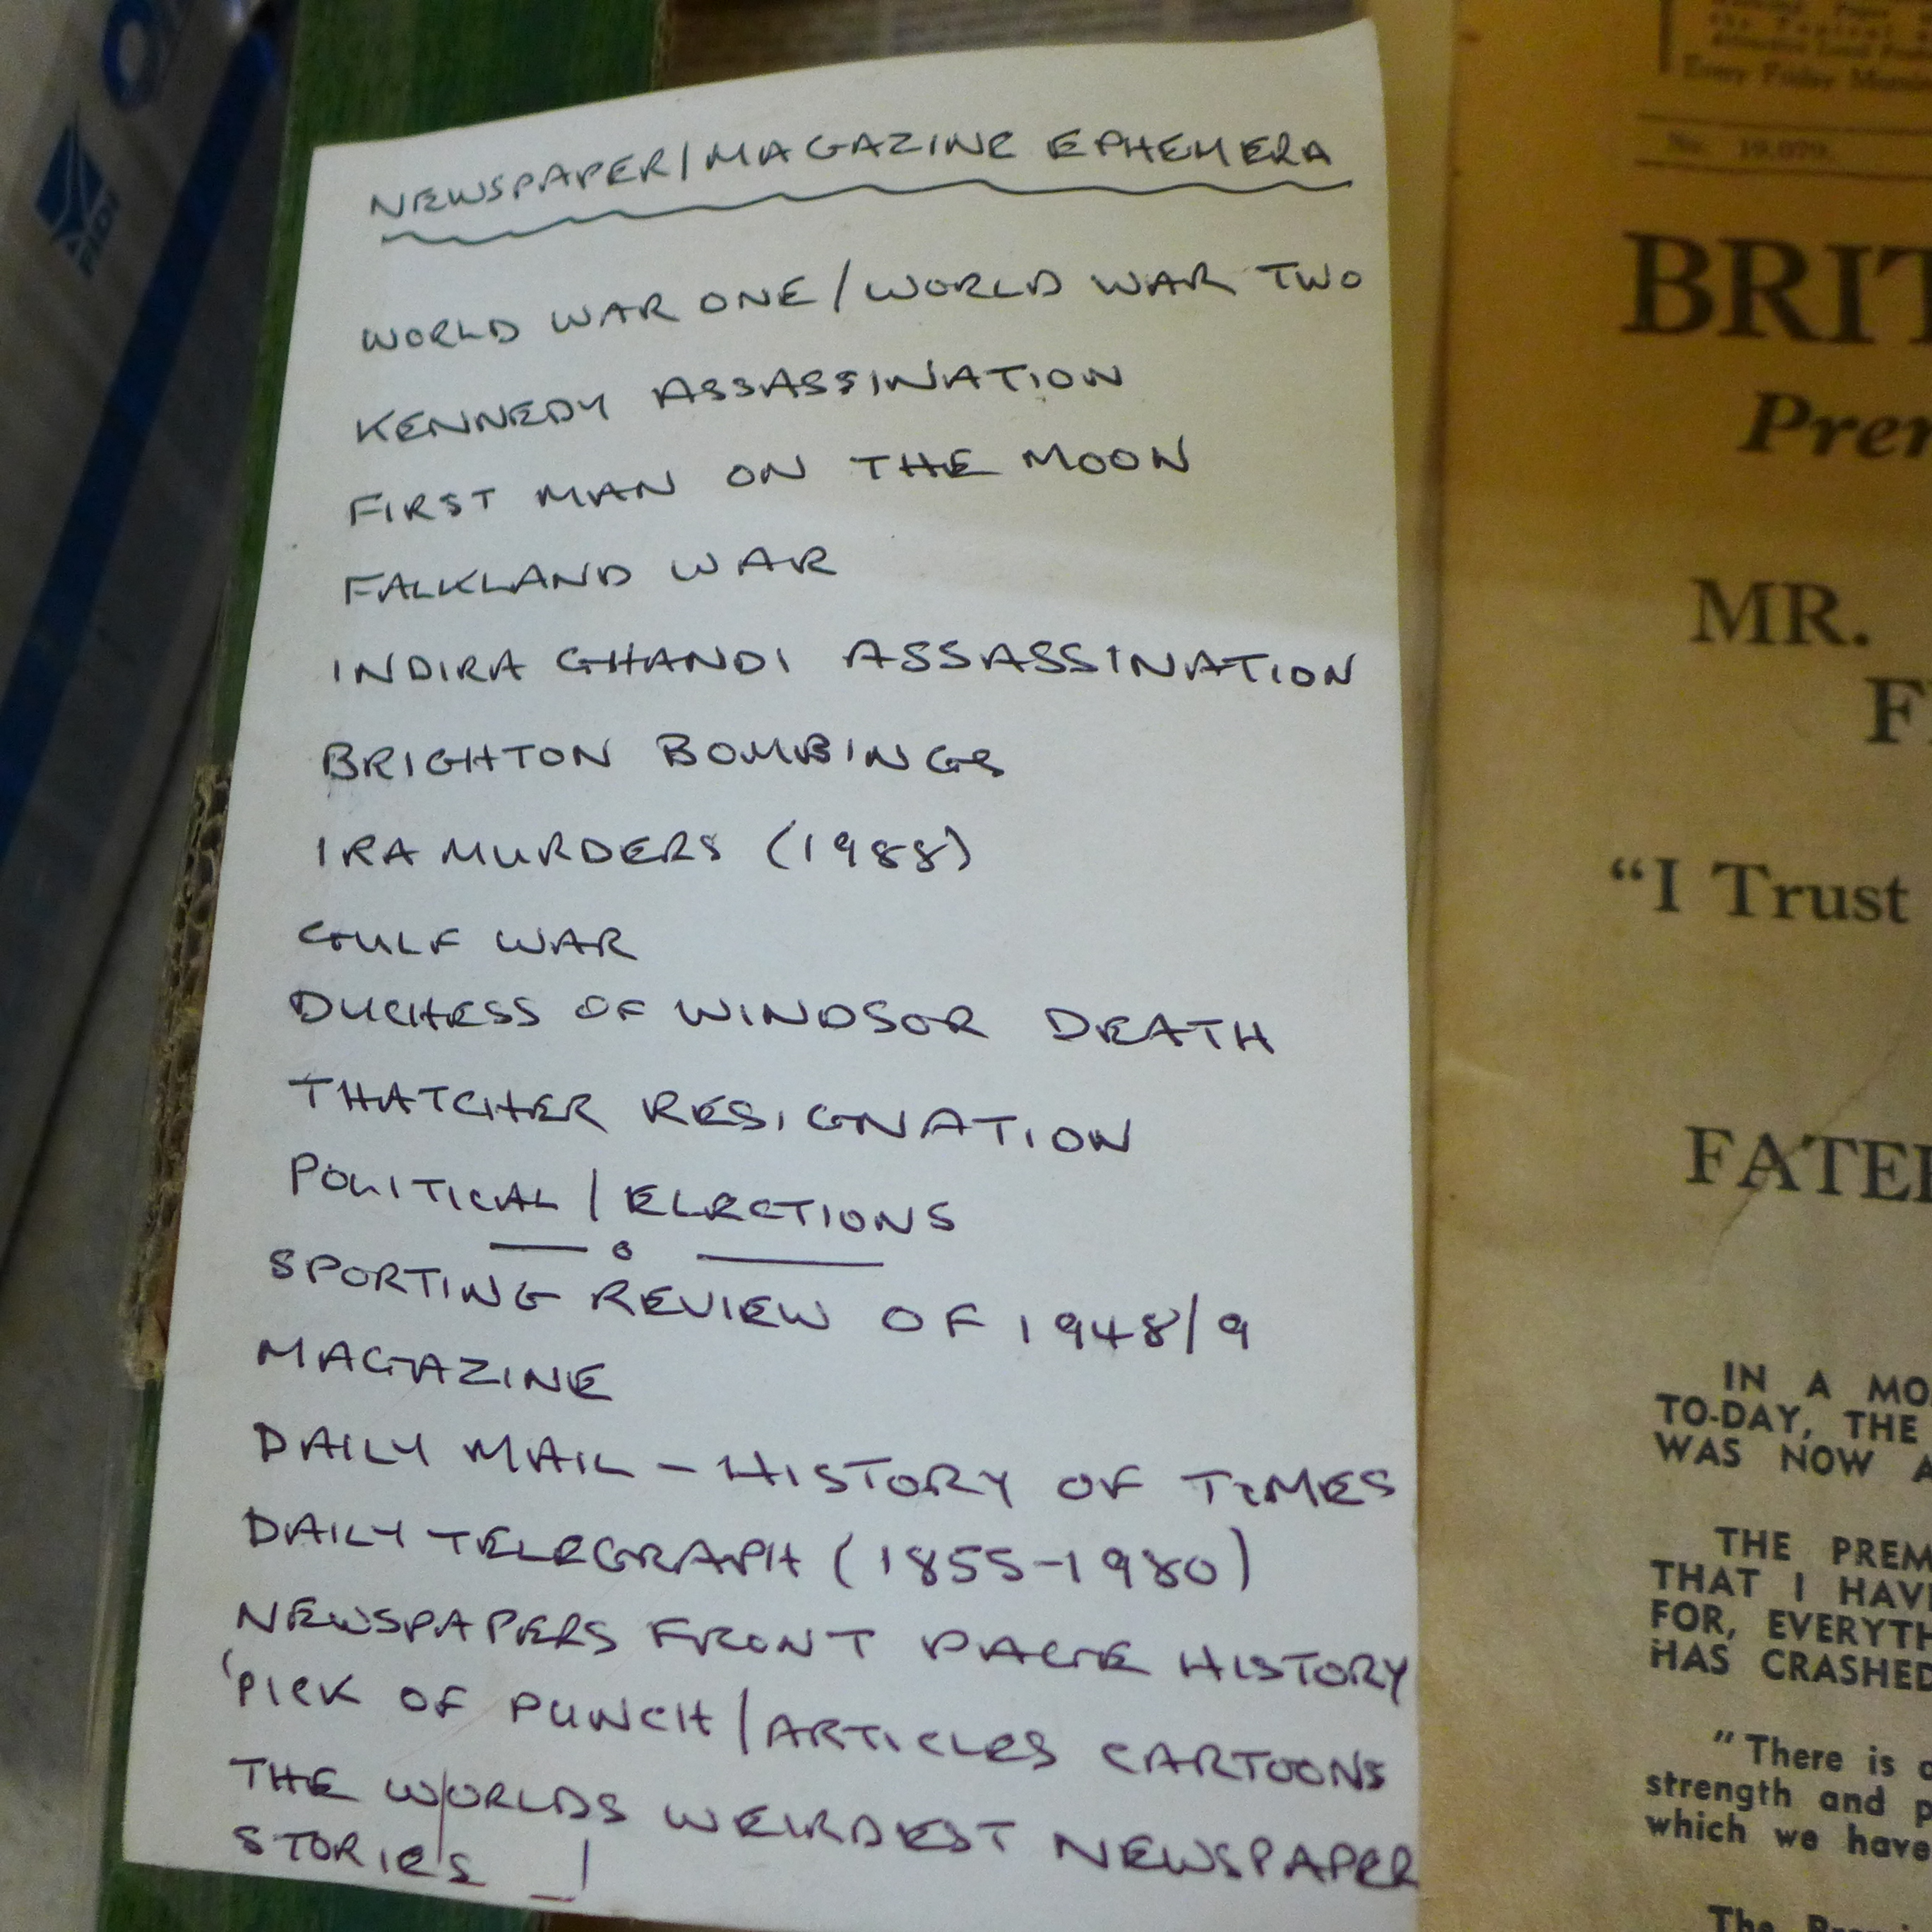 NEWSPAPER/MAGAZINE EPHEMERA
WORLD WAR ONE/WORLD WAR TWO
KENNEDY ASSASSINATION
FIRST MAN ON THE MOON
FALKLAND WAR
INDIRA GHANDI ASSASSINATION
BRIGHTON BOMBINGS
IRA MURDERS (1988)
GULF WAR
DUCHESS OF WINDSOR DEATH
THATCHER RESIGNATION
POLITICAL/ELECTIONS
SPORTING REVIEW OF 1948/9
MAGAZINE
DAILY MAIL - HISTORY OF TIMES
DAILY TELEGRAPH (1855-1980)
NEWSPAPERS FRONT PAGE HISTORY
'PICK OF PUNCH/ARTICLES CARTOONS
THE WORLDS WEIRDEST NEWSPAPER
STORIES
Every Friday
No. 19,079.
BRIT
Prem
MR.
"I Trust
FATE
IN A MO
TO-DAY, THE
WAS NOW A
THE PREM
THAT I HAV
FOR, EVERYTH
HAS CRASHED
"There is
strength and p
which we have
The